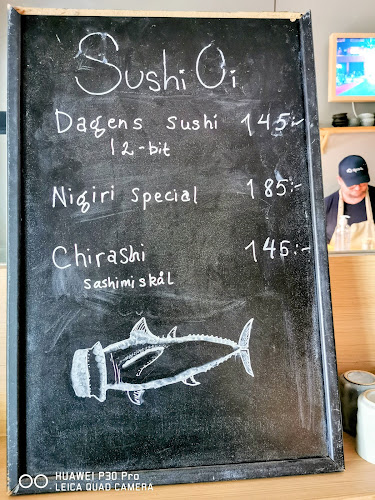 Sushi Oi
Dagens sushi 145:-
12-bit
Nigiri special 185:-
Chirashi 145:-
sashimiskål
HUAWEI P30 Pro
LEICA QUAD CAMERA